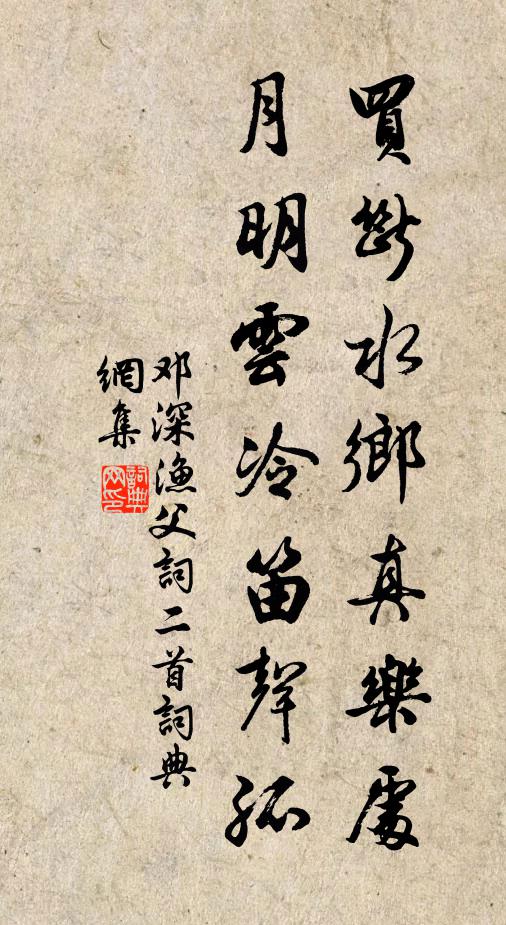 買斷水鄉真樂處
月明雲冷笛聲孤
邓深漁父詞二首詞典
網集
詞典
网印